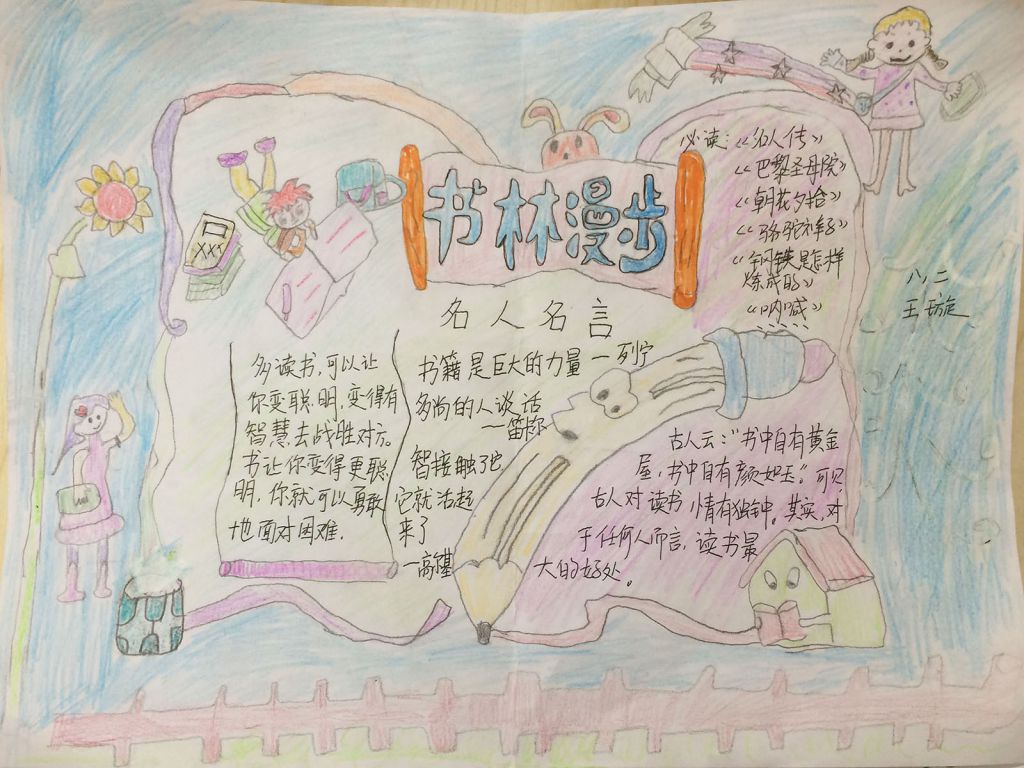 书林漫步
XXX
必读：《名人传》
《巴黎圣母院》
《朝花夕拾》
《骆驼祥子》
《钢铁是怎样
炼成的》
《呐喊》
......
八.二
王璇
名人名言
多读书,可以让
你变聪明,变得有
智慧去战胜对方。
书让你变得更聪
明,你就可以勇敢
地面对困难.
书籍是巨大的力量 —列宁
高尚的人谈话
—笛卡尔
智接触了它
它就活起
来了
—高尔基
古人云：“书中自有黄金
屋,书中自有颜如玉”。可见
古人对读书情有独钟。其实,对
于任何人而言,读书最
大的好处。